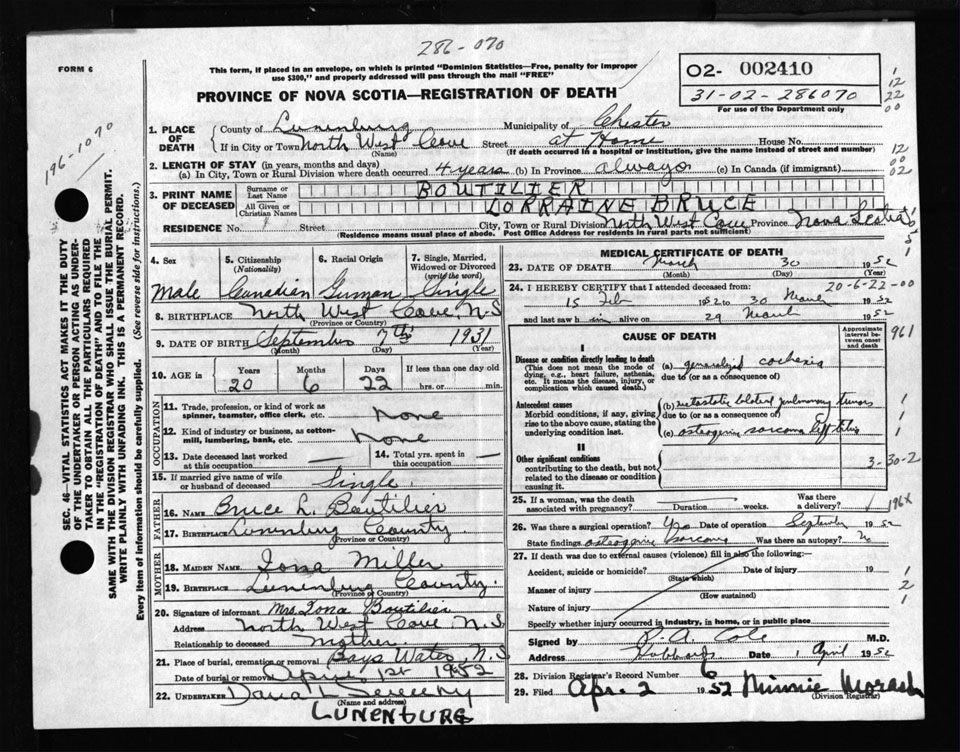 286-070
FORM 6
This form, if placed in an envelope, on which is printed "Dominion Statistics—Free, penalty for improper
use $300," and properly addressed will pass through the mail "FREE"
02- 002410
31-02-286070
For use of the Department only
PROVINCE OF NOVA SCOTIA—REGISTRATION OF DEATH
196-10
1. PLACE OF DEATH { County of Lunenburg Municipality of Chester
If in City or Town North West Cove (Name) Street at Home House No.
(If death occurred in a hospital or institution, give the name instead of street and number)
2. LENGTH OF STAY (in years, months and days)
(a) In City, Town or Rural Division where death occurred 4 years (b) In Province always (c) In Canada (if immigrant)
3. PRINT NAME OF DECEASED { Surname or Last Name BOUTILIER
All Given or Christian Names LORRAINE BRUCE
RESIDENCE No. Street City, Town or Rural Division North West Cove Province Nova Scotia
(Residence means usual place of abode. Post Office Address for residents in rural parts not sufficient)
4. Sex Male
5. Citizenship (Nationality) Canadian
6. Racial Origin German
7. Single, Married, Widowed or Divorced (write the word) Single
8. BIRTHPLACE North West Cove, N.S
(Province or Country)
9. DATE OF BIRTH September 7th 1931
(Month) (Day) (Year)
10. AGE in { Years 20 Months 6 Days 22 If less than one day old hrs. or min.
OCCUPATION
11. Trade, profession, or kind of work as spinner, teamster, office clerk, etc. None
12. Kind of industry or business, as cotton-mill, lumbering, bank, etc. None
13. Date deceased last worked at this occupation —
14. Total yrs. spent in this occupation —
15. If married give name of wife or husband of deceased Single
FATHER
16. NAME Bruce L. Boutilier
17. BIRTHPLACE Lunenburg County
(Province or Country)
MOTHER
18. MAIDEN NAME Iona Miller
19. BIRTHPLACE Lunenburg County.
(Province or Country)
20. Signature of informant Mrs. Iona Boutilier
Address North West Cove N.S
Relationship to deceased mother.
21. Place of burial, cremation or removal Bays Water, N.S
Date of burial or removal April 1st 1952
22. UNDERTAKER Dana L
(Name and address)
LUNENBURG
MEDICAL CERTIFICATE OF DEATH
23. DATE OF DEATH March 30 1952
(Month) (Day) (Year)
20-6-22-00
24. I HEREBY CERTIFY that I attended deceased from:
15 Feb 1952 to 30 March 1952
and last saw him alive on 29 March 1952
CAUSE OF DEATH
Approximate interval between onset and death
961
I
Disease or condition directly leading to death
(This does not mean the mode of dying, e.g., heart failure, asthenia, etc. It means the disease, injury, or complication which caused death.)
(a) generalized cachexia
due to (or as a consequence of)
Antecedent causes
Morbid conditions, if any, giving rise to the above cause, stating the underlying condition last.
(b) metastatic bilateral pulmonary tumors
due to (or as a consequence of)
(c) osteogenic sarcoma left tibia
II
Other significant conditions
contributing to the death, but not related to the disease or condition causing it.
3-30-2
25. If a woman, was the death associated with pregnancy? Duration weeks. Was there a delivery?
196X
26. Was there a surgical operation? Yes Date of operation September 1952
State findings osteogenic sarcoma Was there an autopsy? No
27. If death was due to external causes (violence) fill in also the following:
Accident, suicide or homicide? Date of injury 19
(State which)
Manner of injury
(How sustained)
Nature of injury
Specify whether injury occurred in industry, in home, or in public place
Signed by R. A. Cole M.D.
Address Hubbards Date 1 April 1952
28. Division Registrar's Record Number 6
29. Filed Apr. 2 1952 Minnie Morash
(Division Registrar)
SEC. 46—VITAL STATISTICS ACT MAKES IT THE DUTY
OF THE UNDERTAKER OR PERSON ACTING AS UNDER-
TAKER TO OBTAIN ALL THE PARTICULARS REQUIRED
IN THE "REGISTRATION OF DEATH" AND TO FILE THE
SAME WITH THE DIVISION REGISTRAR WHO SHALL ISSUE THE BURIAL PERMIT.
WRITE PLAINLY WITH UNFADING INK. THIS IS A PERMANENT RECORD.
Every item of information should be carefully supplied. (See reverse side for instructions.)